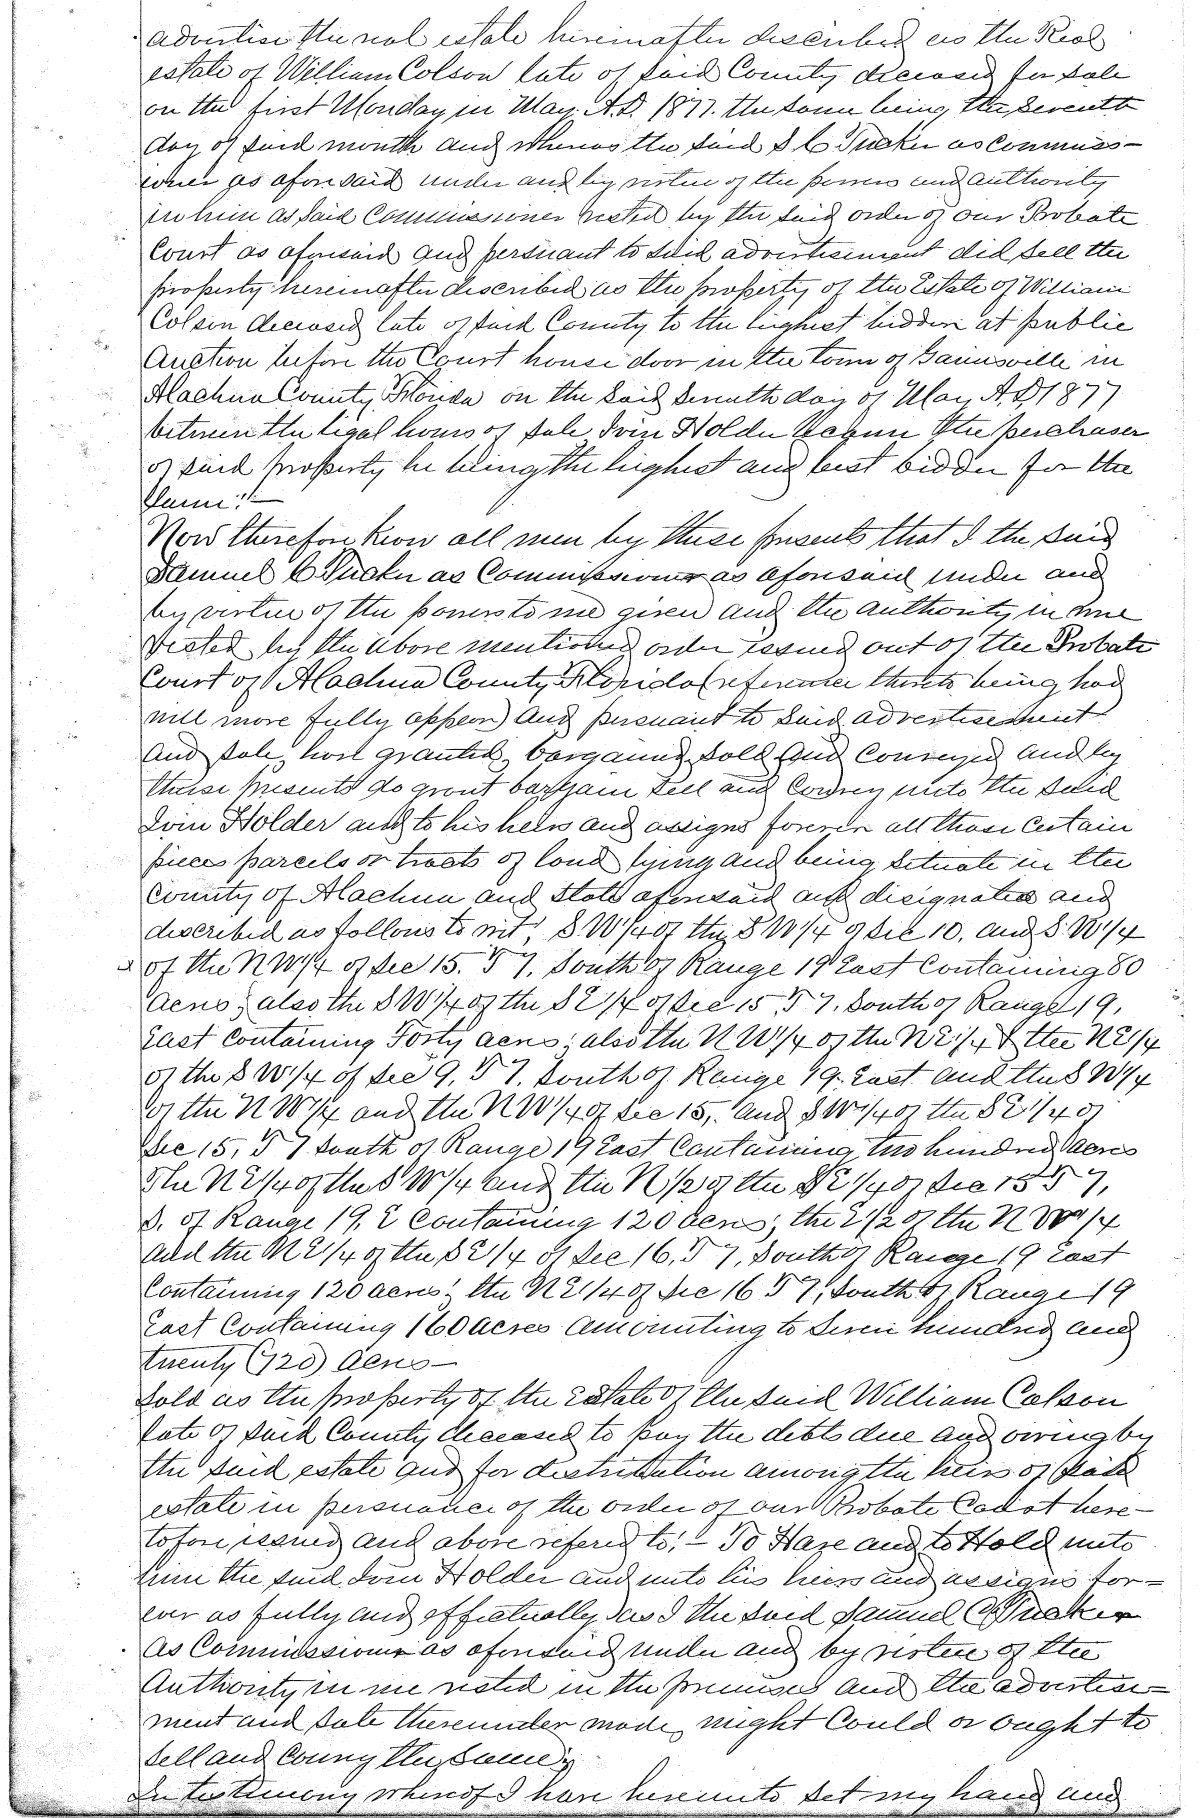 advertise the real estate hereinafter described as the Real
estate of William Colson late of said County deceased for sale
on the first Monday in May A.D. 1877. the same being the Seventh
day of said month and whereas the said S C Tucker as Commiss-
ioner as aforesaid under and by virtue of the powers and authority
in him as said Commissioner vested by the said order of our Probate
Court as aforesaid and persuant to said advertisement did sell the
property hereinafter described as the property of the Estate of William
Colson deceased late of said County to the highest bidder at public
Auction before the Court house door in the town of Gainsville in
Alachua County Florida on the said Seventh day of May A.D 1877
between the legal hours of sale Holder became the perchaser
of said property he being the highest and best bidder for the
Same:—
Now therefore know all men by these presents that I the said
Samuel C Tucker as Commissioner as aforesaid under and
by virtue of the powers to me given and the authority in me
vested by the above mentioned order issued out of the Probate
Court of Alachua County Florida (reference thereto being had
will more fully appear) and pursuant to said advertisement
and sale, have granted, bargained sold and Conveyed and by
these presents do grant bargain sell and Convey unto the said
Holder and to his heirs and assigns forever all those Certain
pieces parcels or tracts of land lying and being Situate in the
County of Alachua and State aforesaid and disignated and
described as follows to wit, S W 1/4 of the S W 1/4 of Sec 10. and S W 1/4
of the N W 1/4 of Sec 15. T 7. South of Range 19 East Containing 80
acres; also the S W 1/4 of the S E 1/4 of Sec 15 T 7. South of Range 19,
East Containing Forty acres; also the N W 1/4 of the N E 1/4 & the N E 1/4
of the S W 1/4 of Sec 9, T 7. South of Range 19. East and the S W 1/4
of the N W 1/4 and the N W 1/4 of Sec 15, and S W 1/4 of the S E 1/4 of
Sec 15, T 7 South of Range 19 East Containing two hundred acres
The N E 1/4 of the S W 1/4 and the N 1/2 of the S E 1/4 of Sec 15 T 7,
S. of Range 19. E Containing 120 acres; the E 1/2 of the N W 1/4
and the N E 1/4 of the S E 1/4 of Sec 16. T 7. South of Range 19 East
Containing 120 acres; the N E 1/4 of Sec 16 T 7, South of Range 19
East Containing 160 acres amounting to Seven hundred and
twenty (720) acres—
Sold as the property of the Estate of the said William Colson
late of said County deceased to pay the debts due and owing by
the said estate and for distribution among the heirs of said
estate in persuance of the order of our Probate Court here-
tofore issued and above refered to:— To Have and to Hold unto
him the said Holder and unto his heirs and assigns for=
ever as fully and effectually as I the said Samuel C Tucker
as Commissioner as aforesaid under and by virtue of the
Authority in me vested in the premises and the advertise=
ment and sale thereunder made, might Could or ought to
sell and Convey the same;
In testimony whereof I have hereunto set my hand and